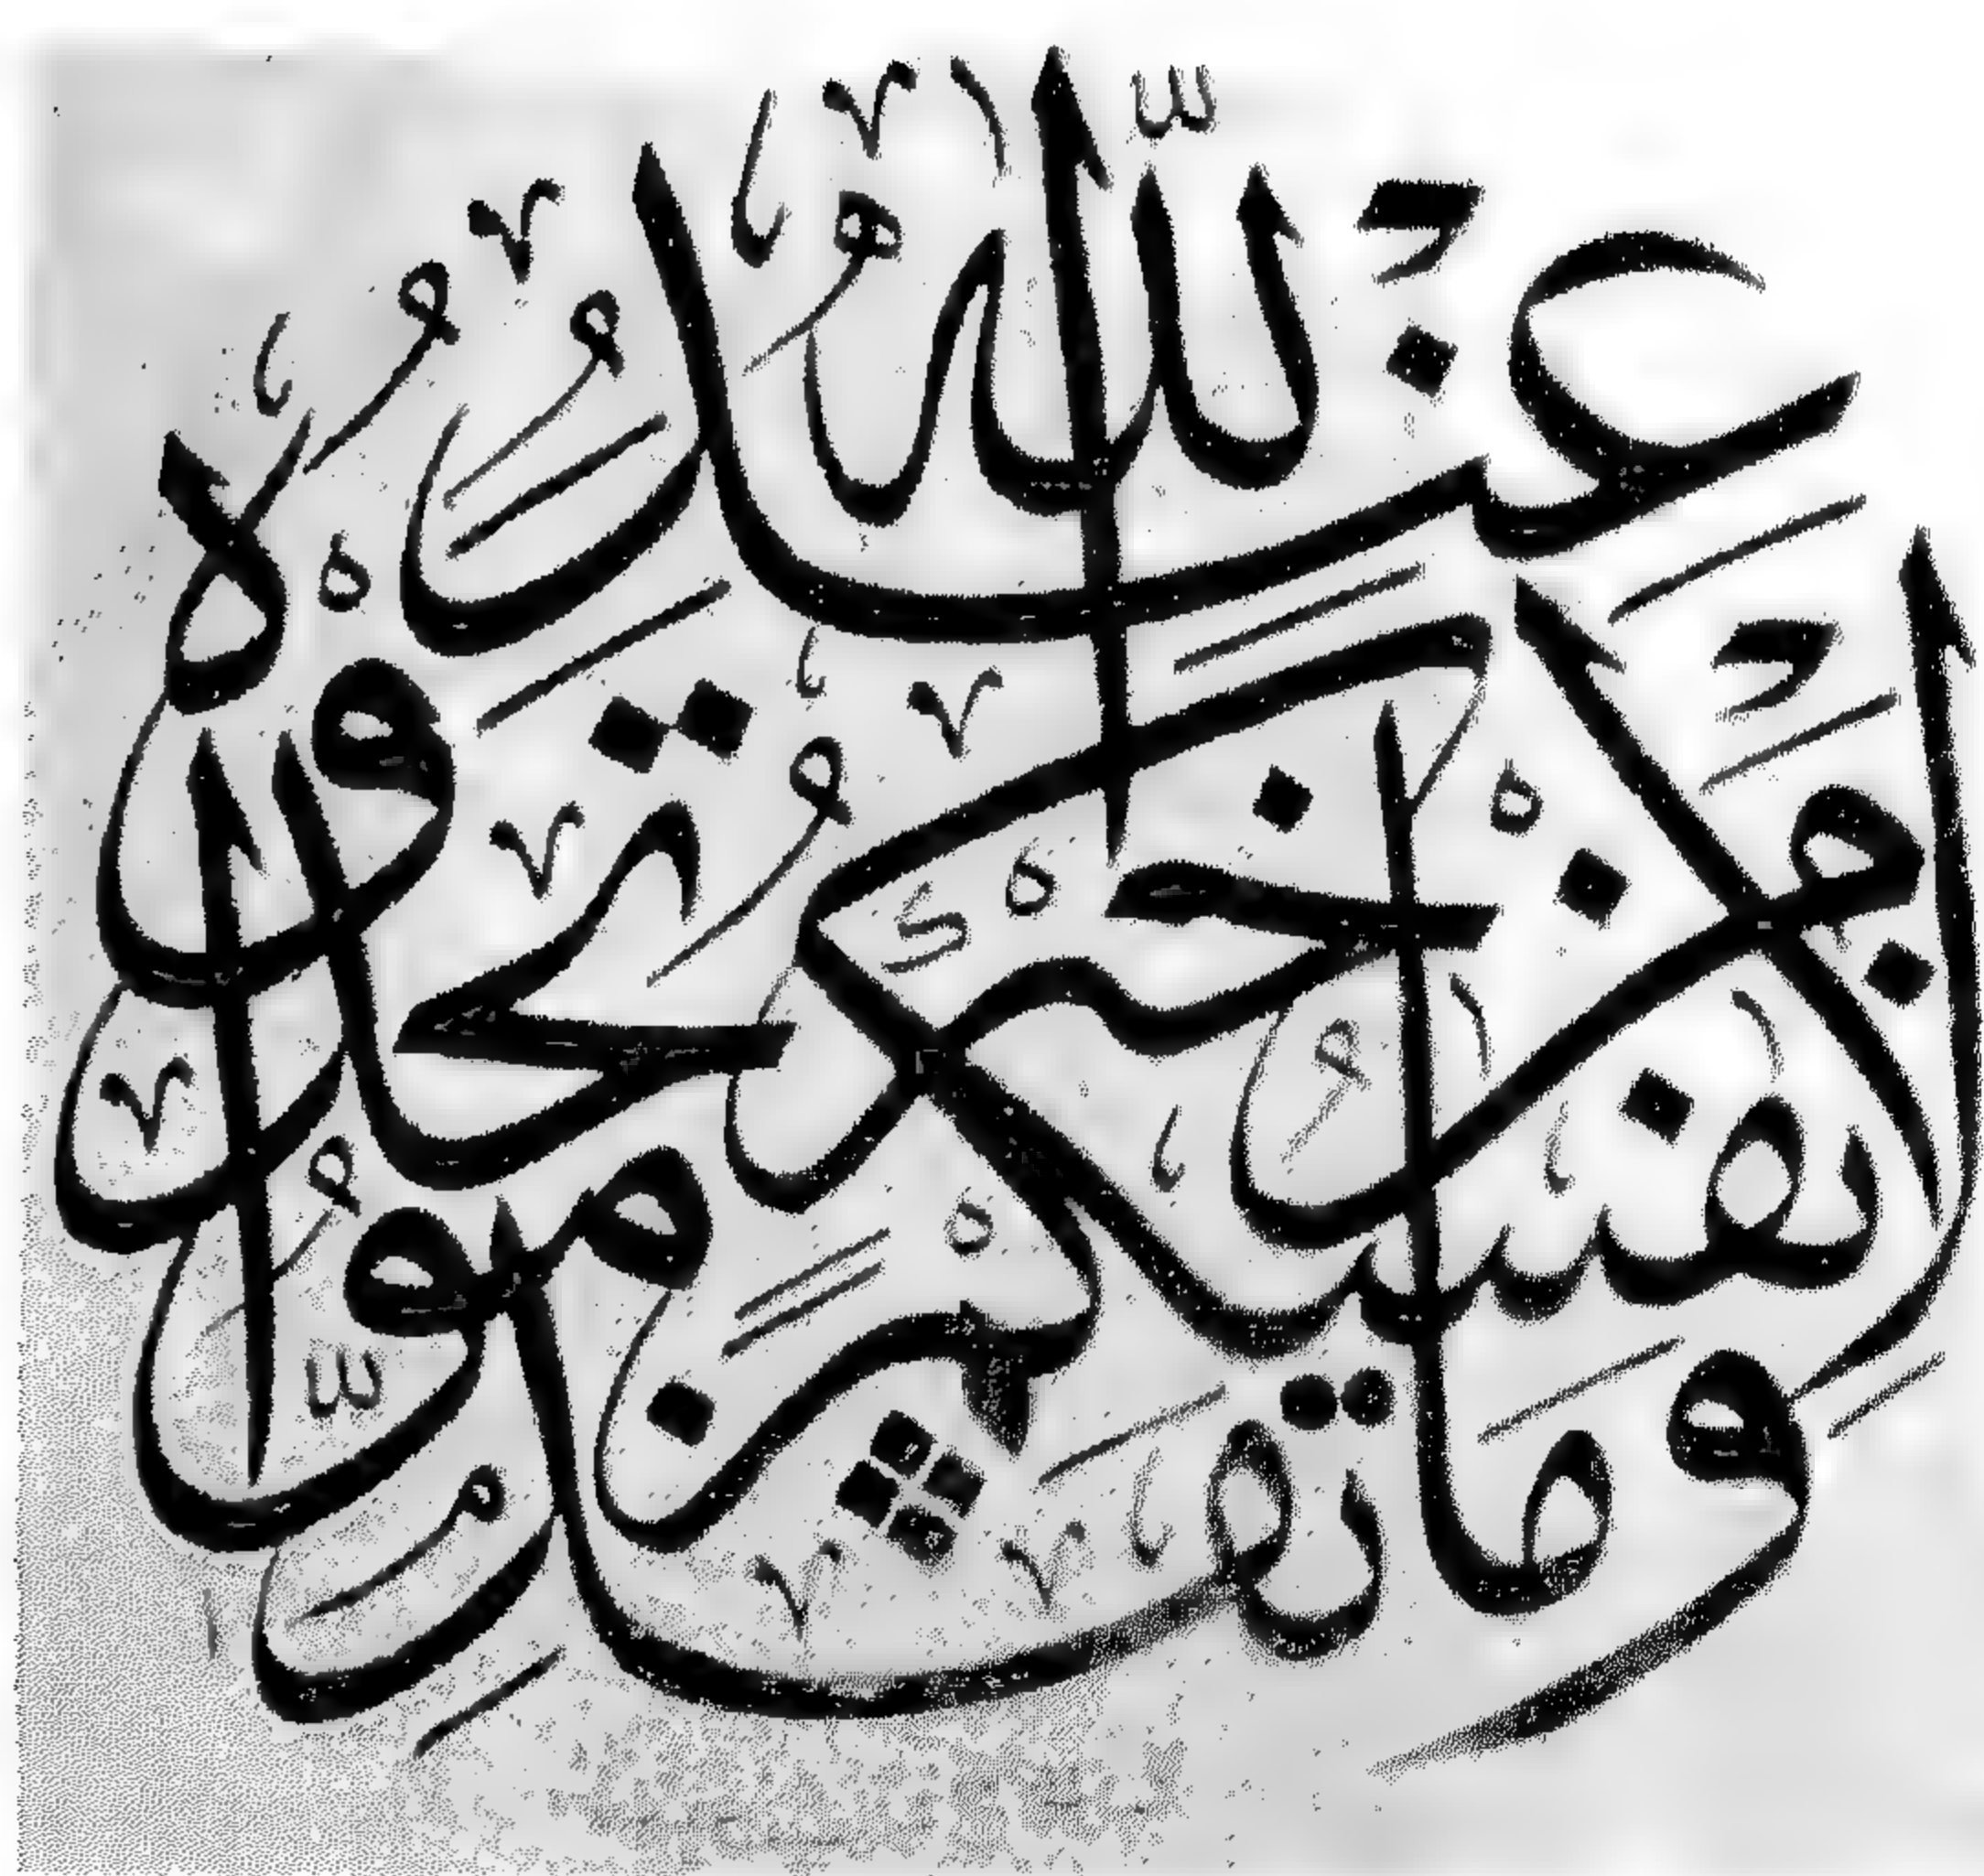 وما تقدموا
لأنفسكم من
خير تجدوه
عند الله